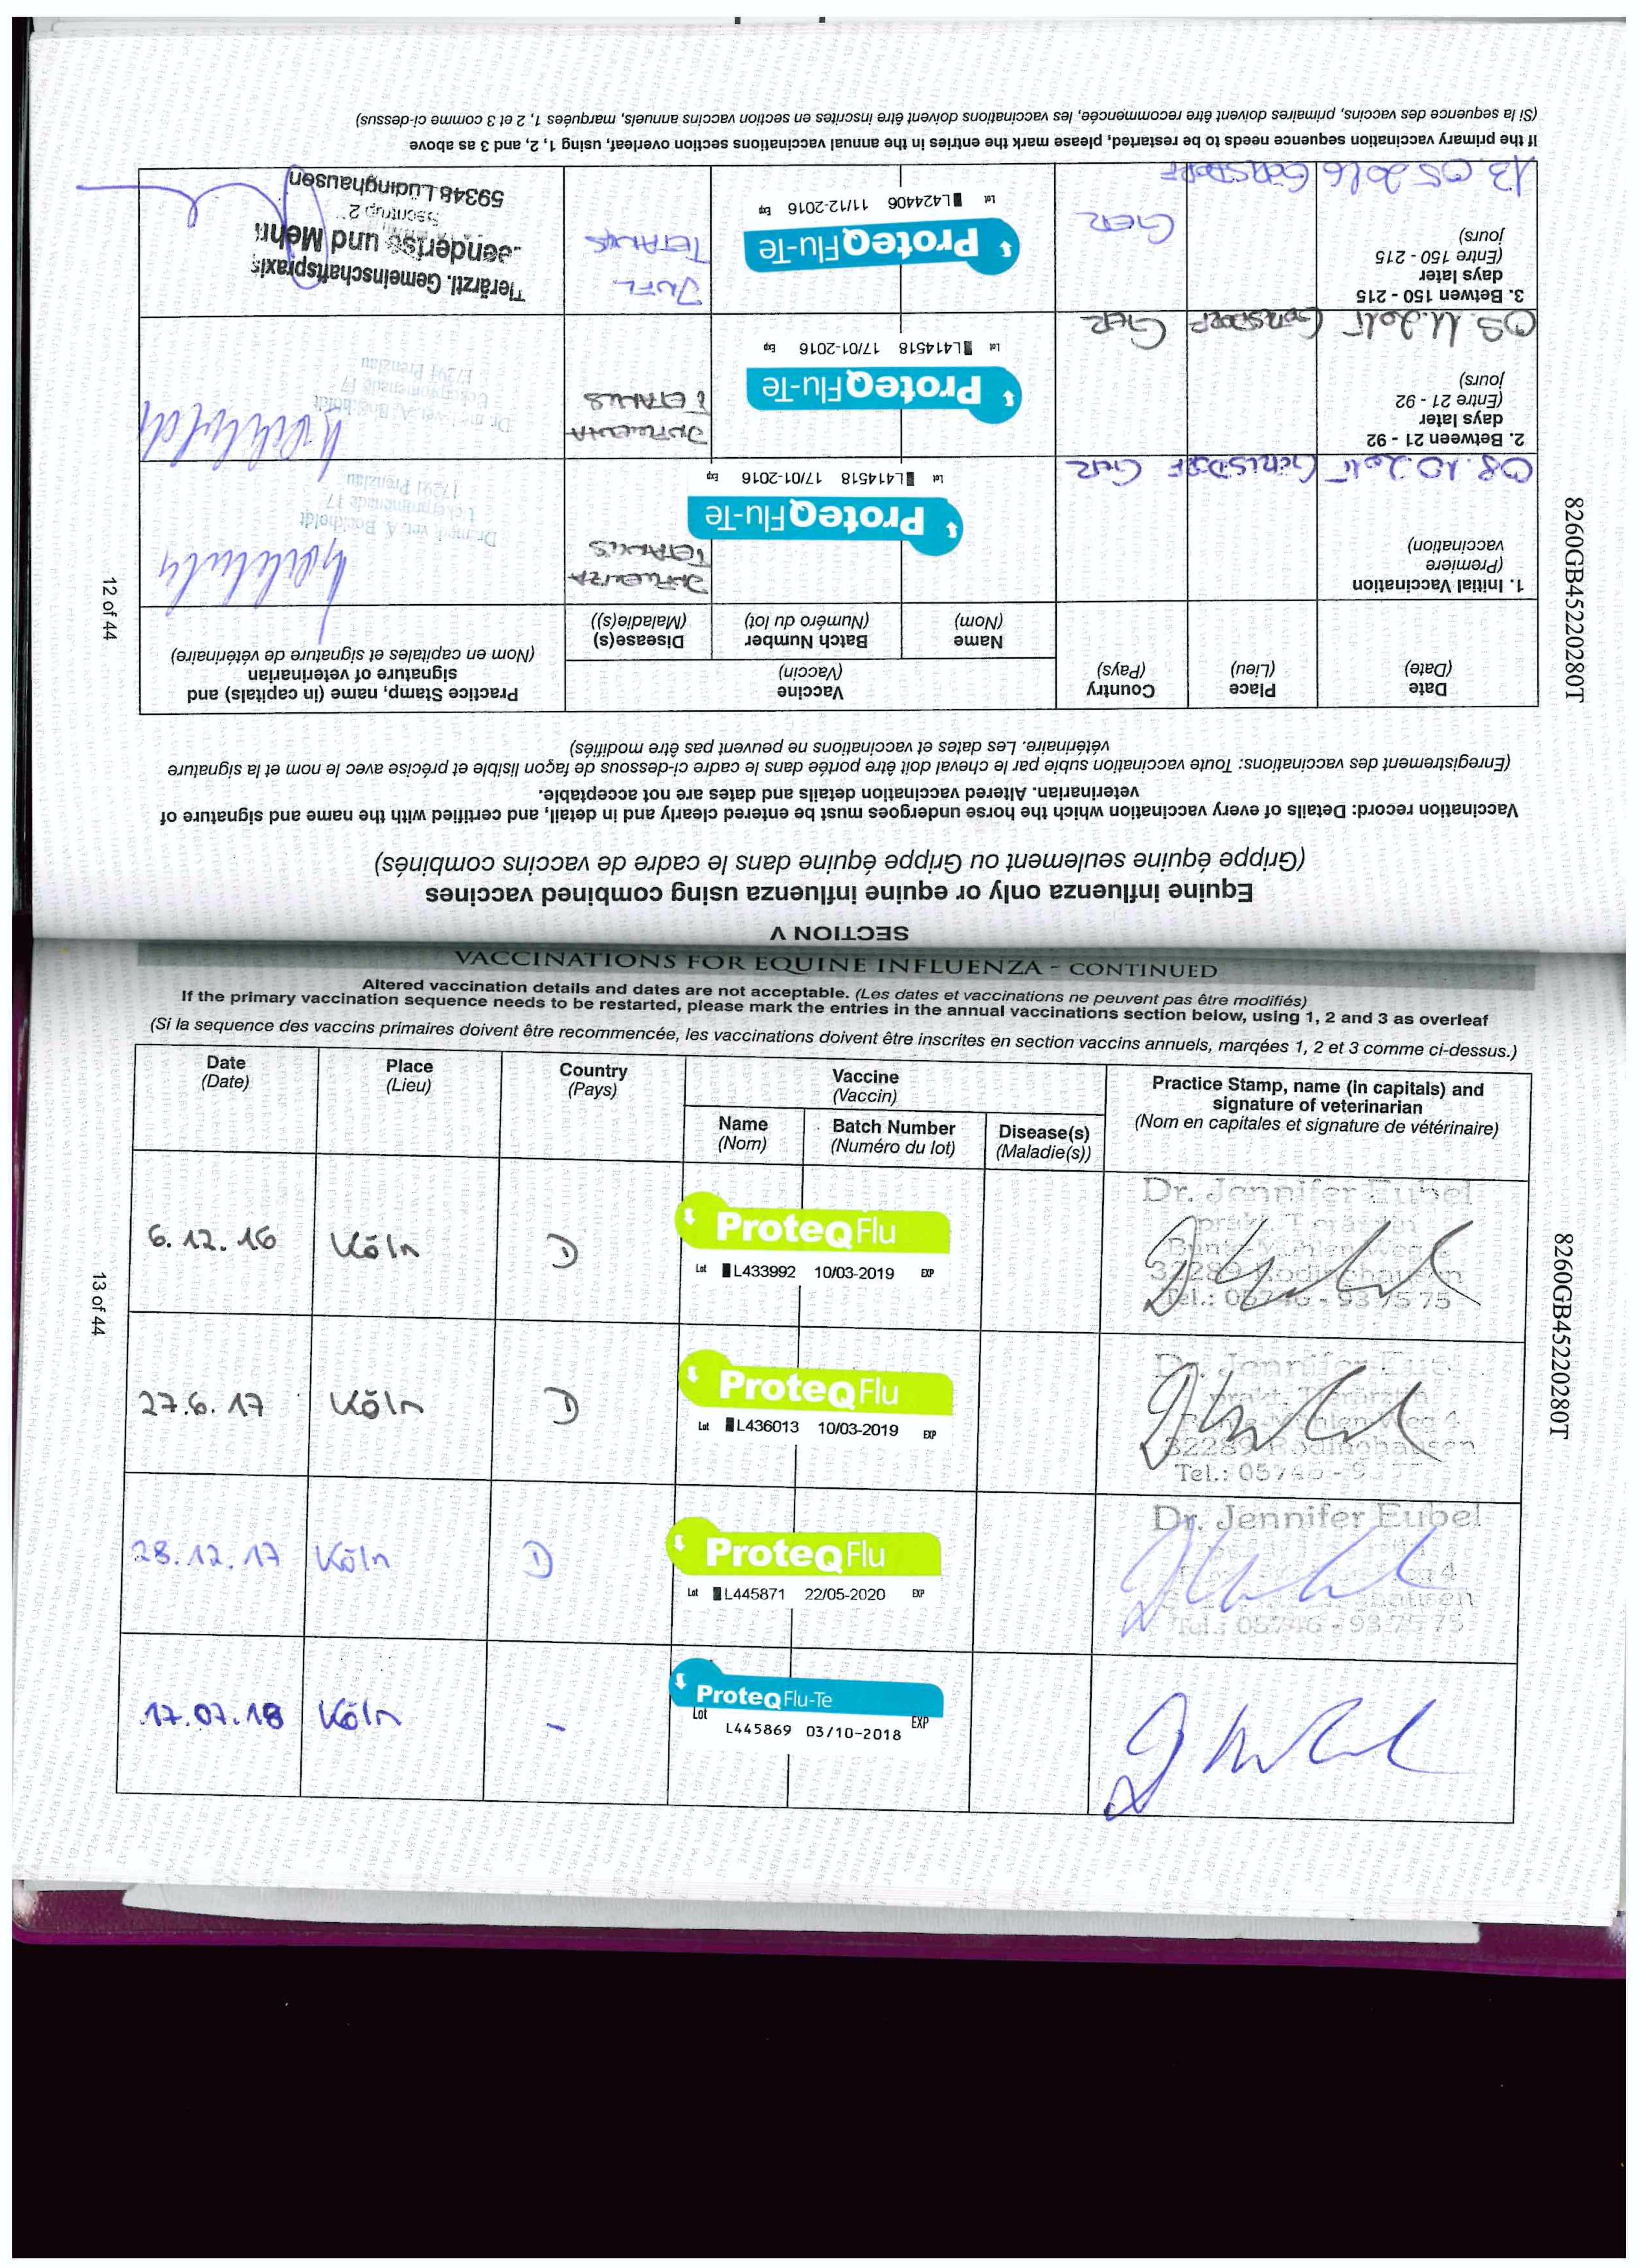 SECTION V
Equine influenza only or equine influenza using combined vaccines
(Grippe équine seulement ou Grippe équine dans le cadre de vaccins combinées)
Vaccination record: Details of every vaccination which the horse undergoes must be entered clearly and in detail, and certified with the name and signature of
veterinarian. Altered vaccination details and dates are not acceptable.
(Enregistrement des vaccinations: Toute vaccination subie par le cheval doit être portée dans le cadre ci-dessous de façon lisible et précise avec le nom et la signature
vétérinaire. Les dates et vaccinations ne peuvent pas être modifiés)
Date
(Date)
Place
(Lieu)
Country
(Pays)
Vaccine
(Vaccin)
Name
(Nom)
Batch Number
(Numéro du lot)
Disease(s)
(Maladie(s))
Practice Stamp, name (in capitals) and
signature of veterinarian
(Nom en capitales et signature de vétérinaire)
1. Initial Vaccination
(Premiere
vaccination)
08.10.2015 GÖRLSDORF GER
ProteqFlu-Te
Lot L414518 17/01-2016 Exp
INFLUENZA
TETANUS
Dr. med. vet. A. Bockholdt
Uckerpromenade 17
17291 Prenzlau
2. Between 21 - 92
days later
(Entre 21 - 92
jours)
09.11.2015 GÖRLSDORF GER
ProteqFlu-Te
Lot L414518 17/01-2016 Exp
INFLUENZA
TETANUS
Dr. med. vet. A. Bockholdt
Uckerpromenade 17
17291 Prenzlau
3. Betwen 150 - 215
days later
(Entre 150 - 215
jours)
13.05.2016 GÖRLSDORF
GER
ProteqFlu-Te
Lot L424406 11/12-2016 Exp
INFL
TETANUS
Tierärztl. Gemeinschaftspraxis
und Mehr
2
59348 Lüdinghausen
If the primary vaccination sequence needs to be restarted, please mark the entries in the annual vaccinations section overleaf, using 1, 2, and 3 as above
(Si la sequence des vaccins, primaires doivent être recommencée, les vaccinations doivent être inscrites en section vaccins annuels, marquées 1, 2 et 3 comme ci-dessus)
12 of 44
8260GB45220280T
VACCINATIONS FOR EQUINE INFLUENZA - CONTINUED
Altered vaccination details and dates are not acceptable. (Les dates et vaccinations ne peuvent pas être modifiés)
If the primary vaccination sequence needs to be restarted, please mark the entries in the annual vaccinations section below, using 1, 2 and 3 as overleaf
(Si la sequence des vaccins primaires doivent être recommencée, les vaccinations doivent être inscrites en section vaccins annuels, marqées 1, 2 et 3 comme ci-dessus.)
Date
(Date)
Place
(Lieu)
Country
(Pays)
Vaccine
(Vaccin)
Name
(Nom)
Batch Number
(Numéro du lot)
Disease(s)
(Maladie(s))
Practice Stamp, name (in capitals) and
signature of veterinarian
(Nom en capitales et signature de vétérinaire)
6.12.16 Köln D
ProteqFlu
Lot L433992 10/03-2019 EXP
Dr. Jennifer Eubel
prakt. Tierärztin
32289 Rödinghausen
Tel.: 05746 - 93 75 75
27.6.17 Köln D
ProteqFlu
Lot L436013 10/03-2019 EXP
Dr. Jennifer
prakt. Tierärztin
32289 Rödinghausen
Tel.: 05746 - 93
28.12.17 Köln D
ProteqFlu
Lot L445871 22/05-2020 EXP
Dr. Jennifer Eubel
Tel.: 05746 - 93 75 75
17.07.18 Köln -
ProteqFlu-Te
Lot L445869 03/10-2018 EXP
13 of 44
8260GB45220280T